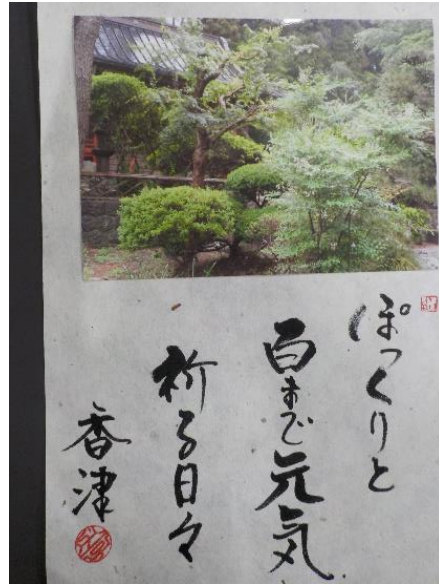 ぽっくりと
百まで元気
祈る日々
香津